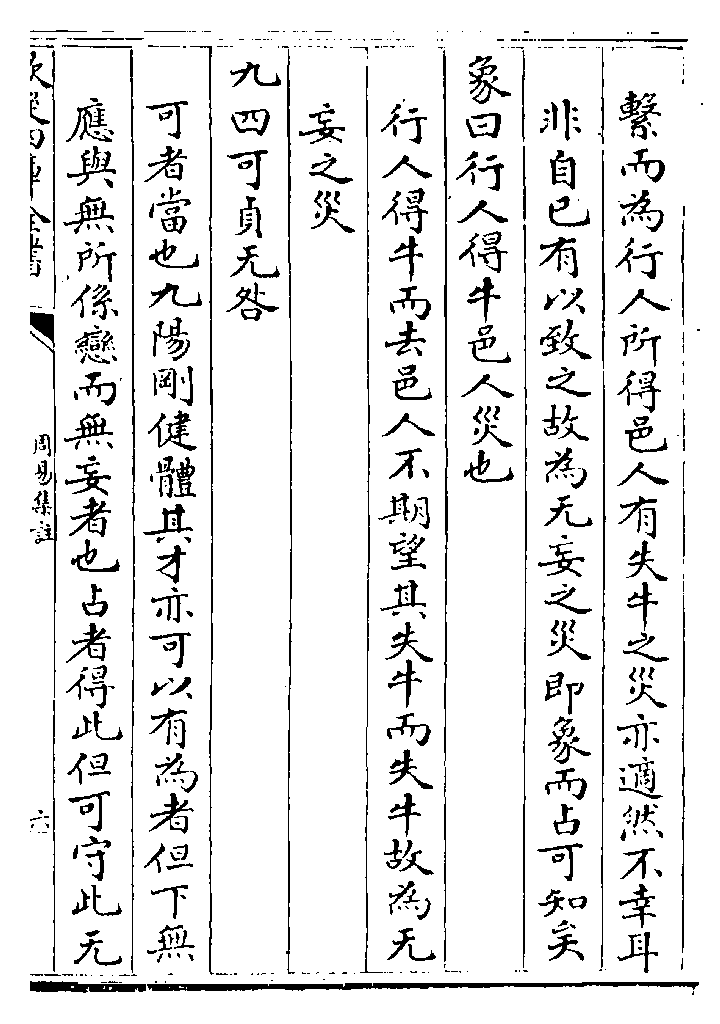 繫而為行人所得邑人有失牛之災亦適然不幸耳
非自己有以致之故為无妄之災即象而占可知矣
象曰行人得牛邑人災也
行人得牛而去邑人不期望其失牛而失牛故為无
妄之災
九四可貞无咎
可者當也九陽剛健體其才亦可以有為者但下無
應與無所係戀而無妄者也占者得此但可守此无
欽定四庫全書
周易集註
六